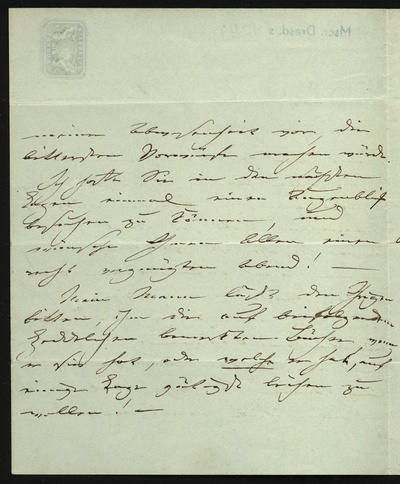 Mscr. Dresd. s
meiner Abwesenheit vor, die
bittersten Vorwürfe machen würde.
Ich hoffe Sie in den nächsten
Tagen einmal einen Augenblick
besuchen zu können, und
wünsche Ihnen Allen einen
recht vergnügten Abend! —
Mein Mann läßt den Ihrigen
bitten, ihm die auf beifolgendem
Zeddelchen bemerkten Bücher, wenn
er sie hat, oder welche er hat, auf
einige Tage gütigst leihen zu
wollen! —